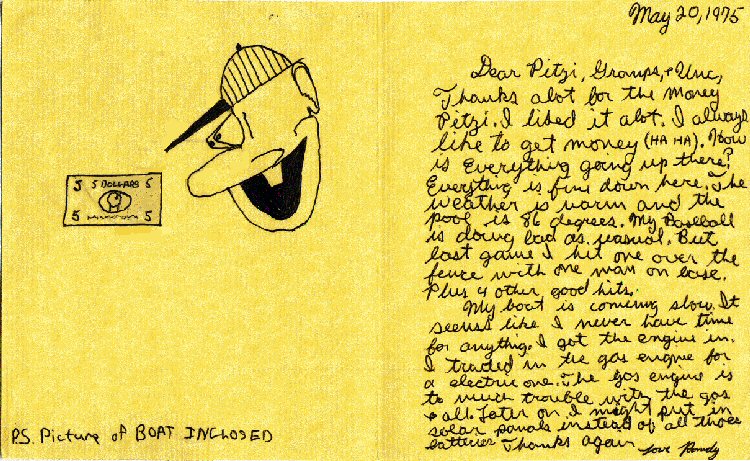 5 5 DOLLARS 5
5 5
P.S. Picture of BOAT INCLOSED
May 20, 1975
Dear Pitzi, Gramps, + Unc,
Thanks alot for the money
Pitzi. I liked it alot. I always
like to get money (HA HA). How
is Everything going up there?
Everything is fine down here. The
weather is warm and the
pool is 86 degrees. My Baseball
is doing bad as usual. But
last game I hit one over the
fence with one man on base.
Plus 4 other good hits.
My boat is comeing slow. It
seems like I never have time
for anything. I got the engine in.
I traded in the gas engine for
a electric one. The gas engine is
to much trouble with the gas
+ all. Later on I might put in
solar panals instead of all those
batteries Thanks again
love Randy